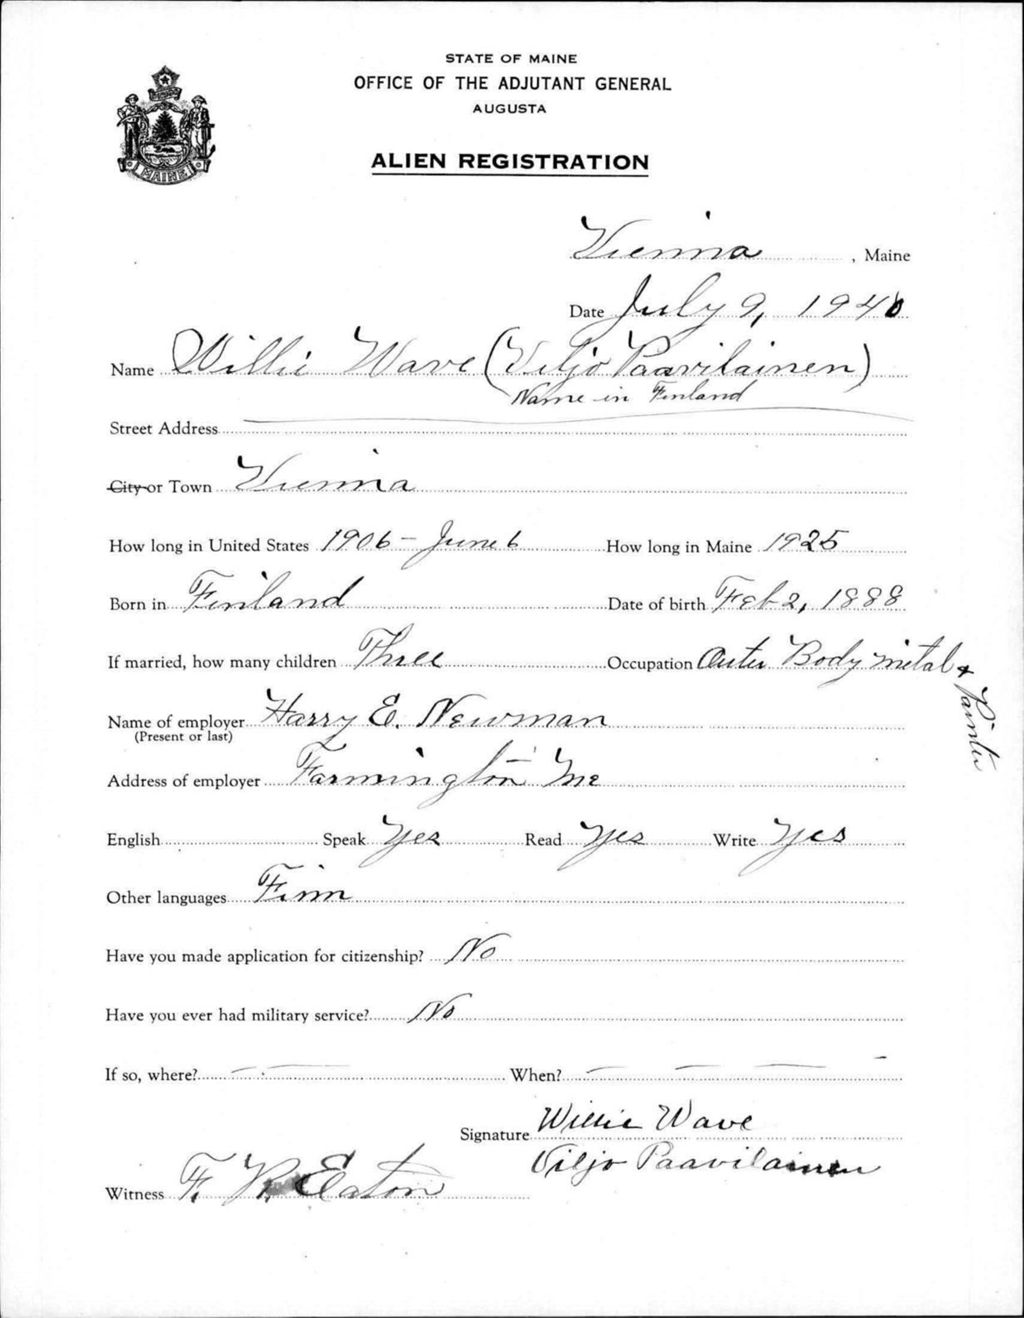 STATE OF MAINE
OFFICE OF THE ADJUTANT GENERAL
AUGUSTA
ALIEN REGISTRATION
MAINE
Vienna, Maine
Date July 9, 1940
Name Willie Wave (Viljo Paavilainen)
Name in Finland
Street Address
City or Town Vienna
How long in United States 1906 - June 6 How long in Maine 1925
Born in Finland Date of birth Feb 2, 1888
If married, how many children Three Occupation Auto Body metal & Painter
Name of employer Harry E. Newman
(Present or last)
Address of employer Farmington Me
English Speak Yes Read Yes Write Yes
Other languages Finn
Have you made application for citizenship? No
Have you ever had military service? No
If so, where? When?
Signature Willie Wave
Viljo Paavilainen
Witness F. R. Eaton